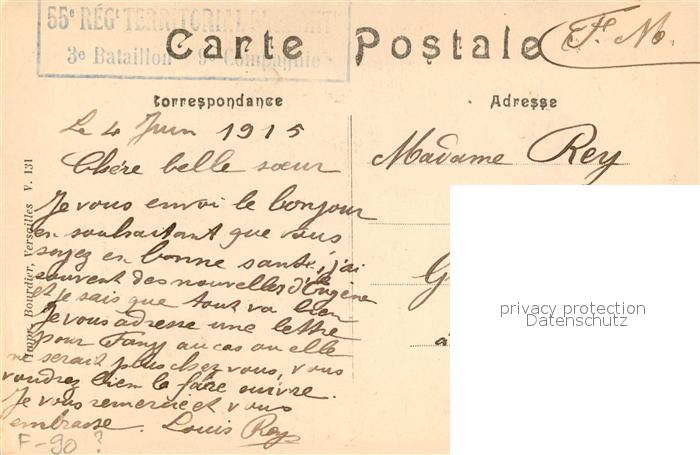 55e RÉGt TERRITORIAL
3e Bataillon - 9e Compagnie
Carte Postale
F. M.
Correspondance
Adresse
Le 4 Juin 1915
Chère belle sœur
Je vous envoi le bonjour
en souhaitant que vous
soyez en bonne santé, j'ai
souvent des nouvelles d'Eugène
et je sais que tout va bien
Je vous adresse une lettre
pour Fany au cas ou elle
ne serait plus chez vous, vous
voudrez bien la faire suivre.
Je vous remercie et vous
embrasse. Louis Rey
F-90 ?
Madame Rey
G
à
Imp. Bourdier, Versailles V. 131
privacy protection
Datenschutz